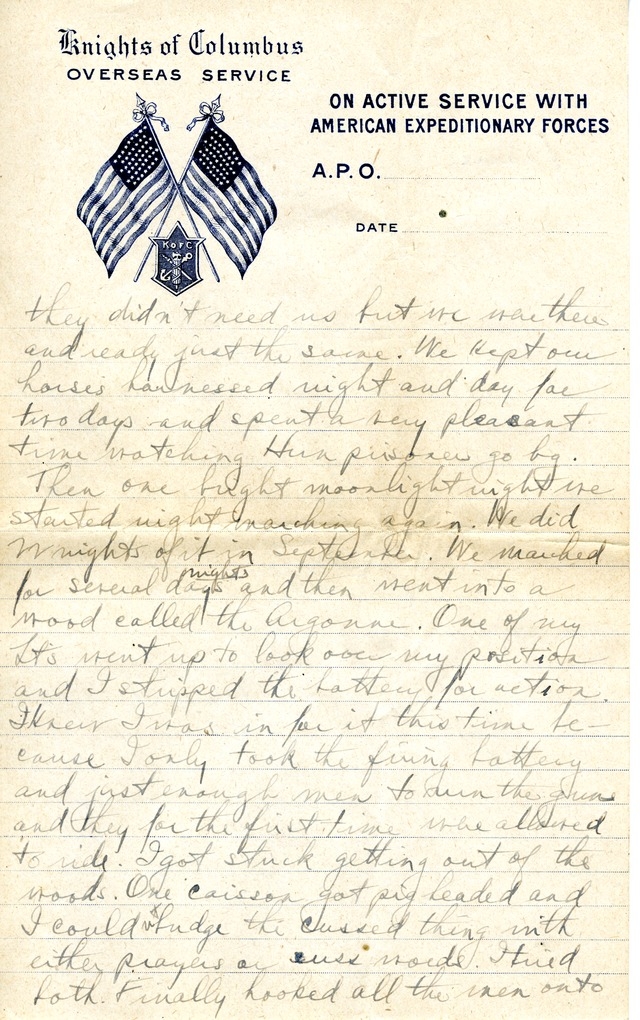 Knights of Columbus
OVERSEAS SERVICE
ON ACTIVE SERVICE WITH
AMERICAN EXPEDITIONARY FORCES
A.P.O.
DATE
K of C
they didn't need us but we were there
and ready just the same. We kept our
horses harnessed night and day for
two days and spent a very pleasant
time watching Hun prisoners go by.
Then one bright moonlight night we
started night marching again. We did
nights of it in September. We marched
nights
for several days and then went into a
wood called the Argonne. One of my
Lts went up to look over my position
and I stripped the battery for action.
I knew I was in for it this time be-
cause I only took the firing battery
and just enough men to run the guns
and they for the first time were allowed
to ride. I got stuck getting out of the
woods. One caisson got pig headed and
I couldn't budge the cussed thing with
either prayers or cuss words. I tried
both. Finally hooked all the men onto